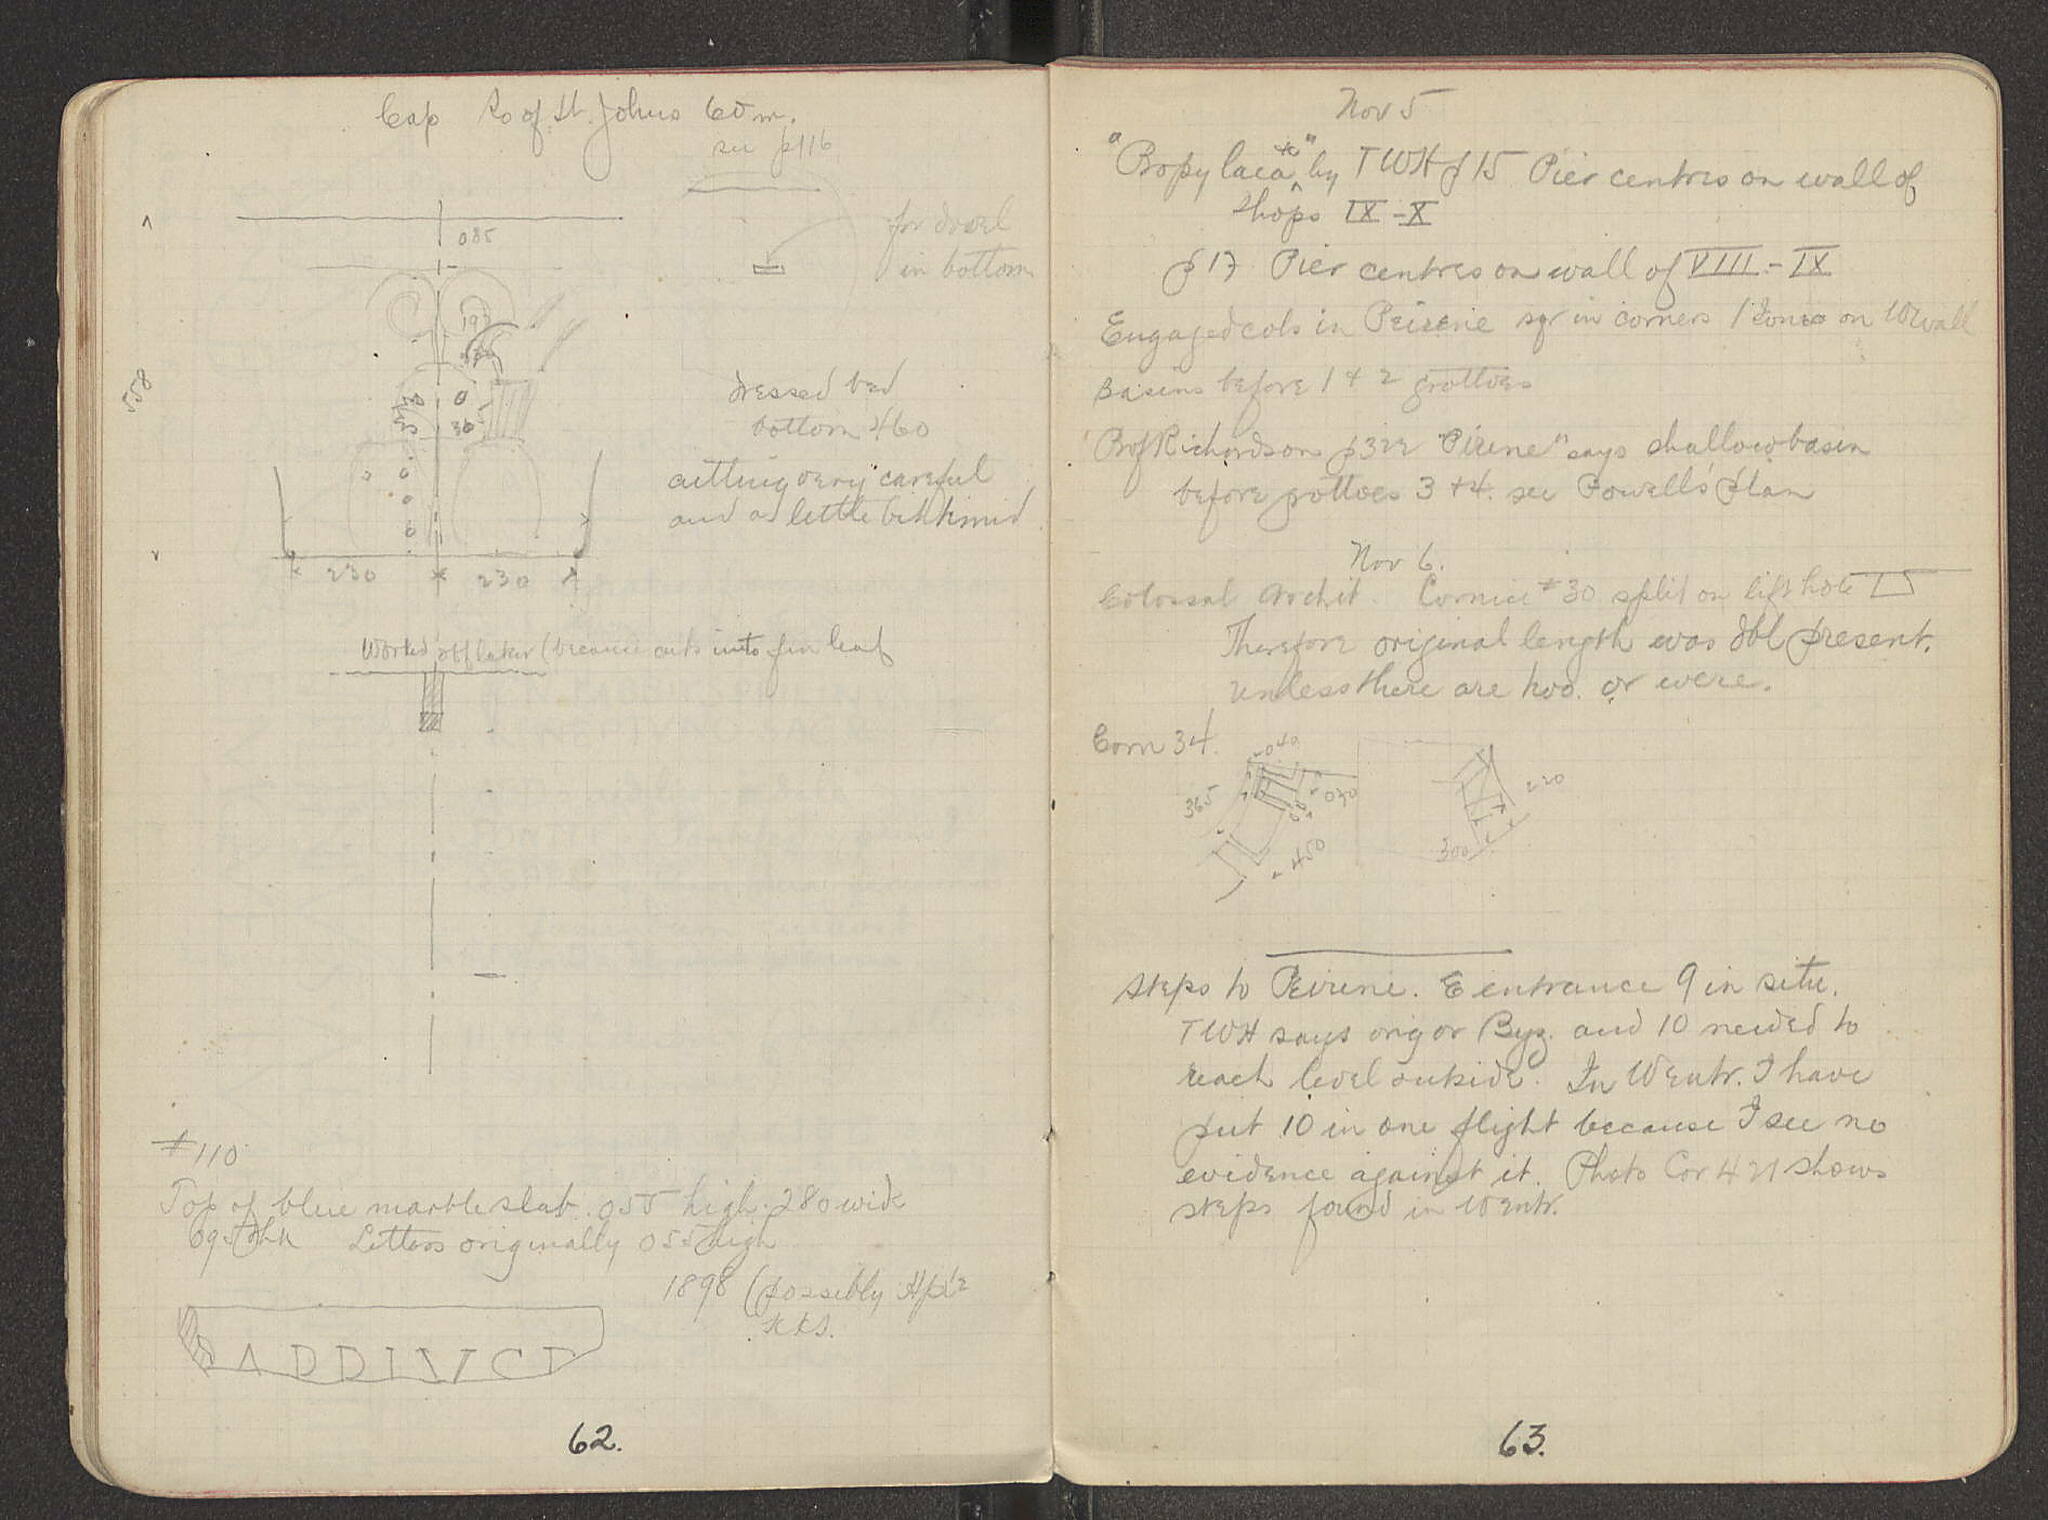 Cap So of St. Johns 60 m.
see p116
085
for dowel
in bottom
193
558
dressed bed
bottom 460
30
cutting very careful
and a little bit
230 230
Worked off later (because cuts into fin leaf
#110
Top of blue marble slab. 055 high. 280 wide
095 thk Letters originally 055 high
1898 (possibly Apr 2
ADDIVCT
62.
Nov 5
"Propylaea" by TWH p 15 Pier centres on wall of
shops IX-X
p 17 Pier centres on wall of VIII-IX
Engaged cols in Peirene sqr in corners / Ionic on W wall
Basins before 1 + 2 grottoes
Prof Richardson p322 "Pirene" says shallow basin
before grottoes 3 + 4. see Powell's plan
Nov 6.
Colossal Archit. Cornice #30 split on lift hole
Therefore original length was dbl present.
unless there are two. or were.
Corn 34.
040
365
030
450
220
300
Steps to Peirene. E entrance 9 in situ.
TWH says orig or Byz. and 10 needed to
reach level outside. In W entr. I have
put 10 in one flight because I see no
evidence against it. Photo Cor 421 shows
steps found in W entr.
63.